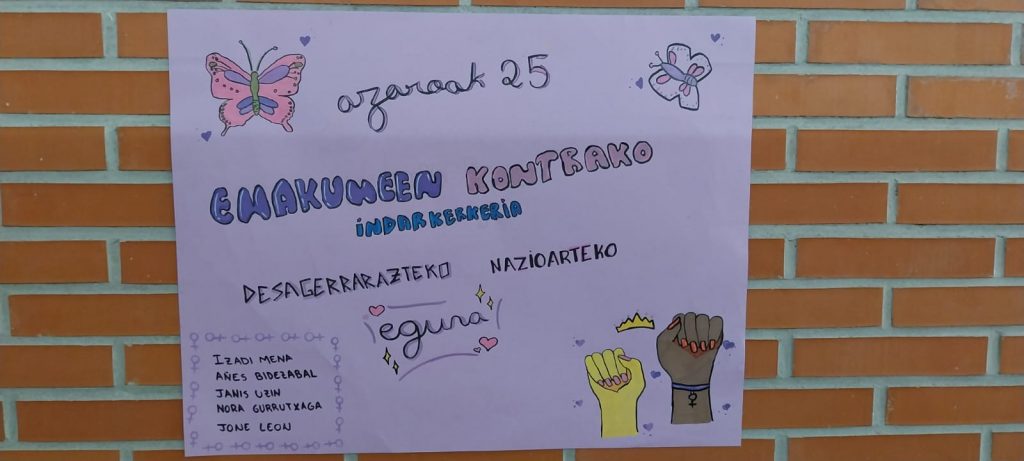 azaroak 25
EMAKUMEEN KONTRAKO
INDARKERKERIA
DESAGERRARAZTEKO NAZIOARTEKO
eguna
IZADI MENA
AÑES BIDEZABAL
JANIS UZIN
NORA GURRUTXAGA
JONE LEON